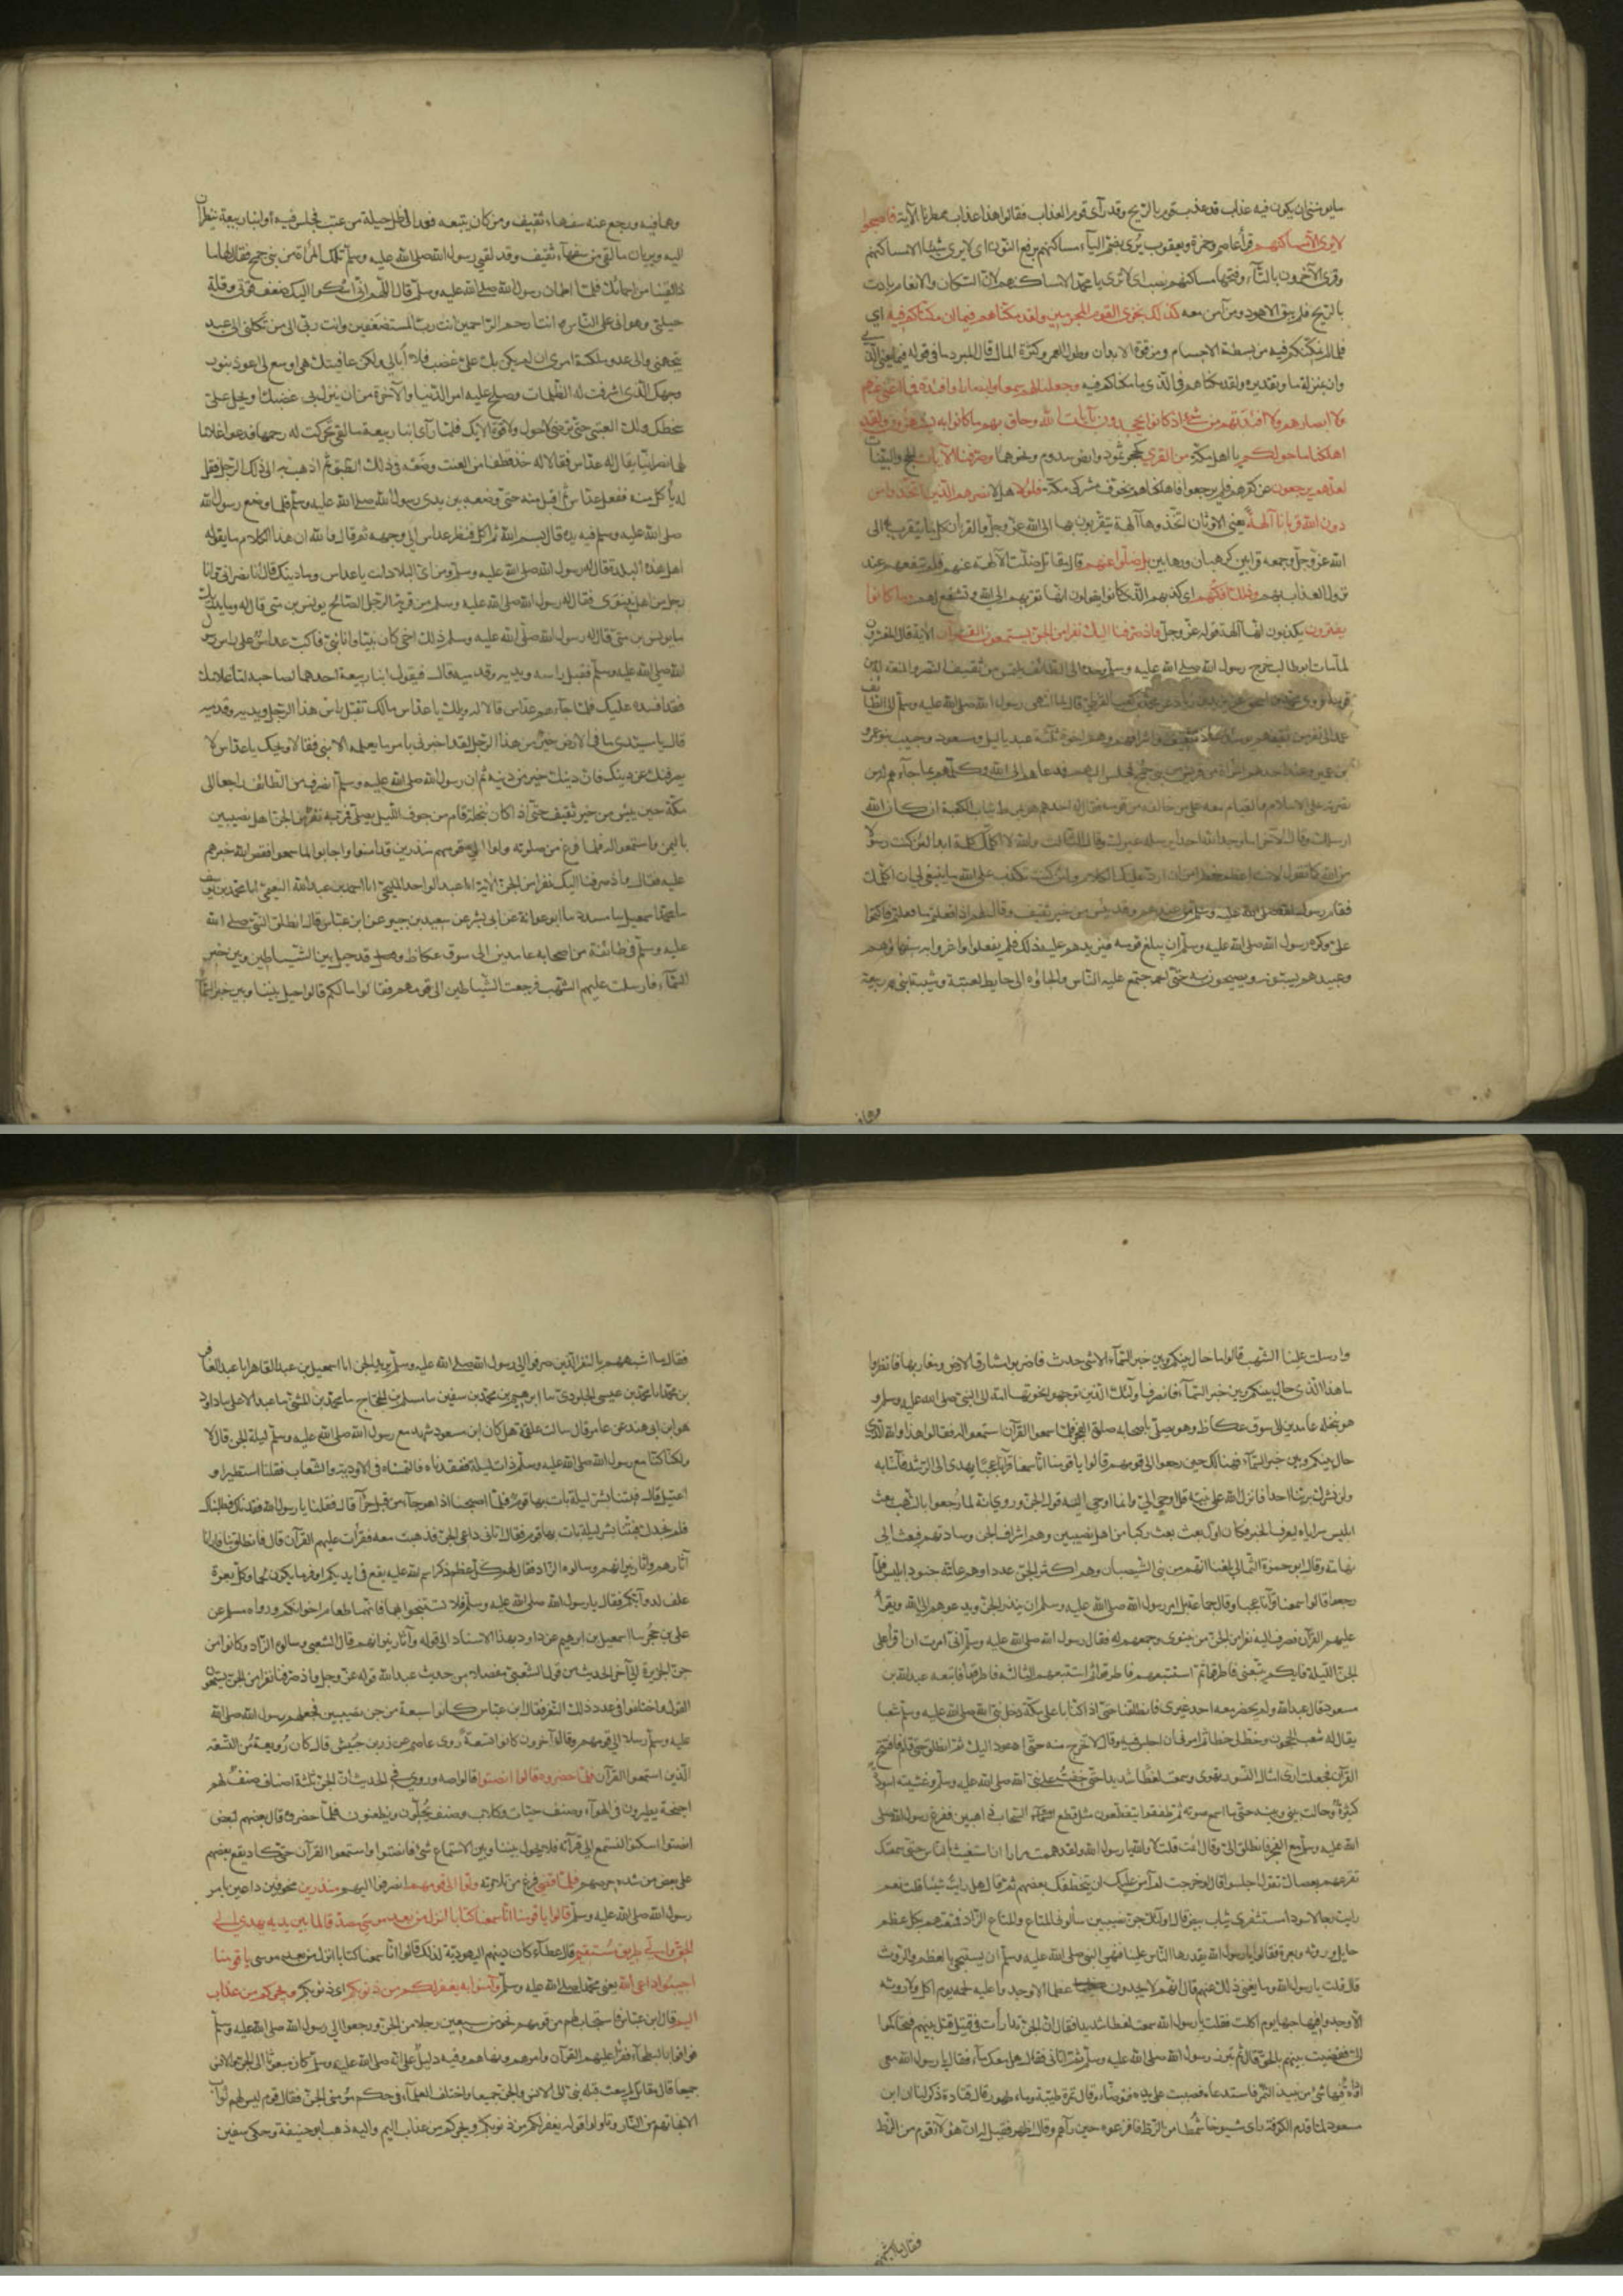 ما يؤمنني ان يكون فيه عذاب قد عذب قوم بالريح وقد رأى قوم العذاب فقالوا هذا عارض ممطرنا الآية فاصبحوا
لا يرى الا مساكنهم قرأ عاصم وحمزة ويعقوب يرى بضم اليآء مساكنهم برفع النون اى لا يرى شئ الا مساكنهم
وقرأ الآخرون بالتآء وفتحها مساكنهم نصب اى لا ترى يا محمد الا مساكنهم لان السكان والانعام بادت
بالريح فلم يبق الا هود ومن آمن معه كذلك نجزى القوم المجرمين ولقد مكناهم فيما ان مكناكم فيه اى
فيما لم نمكنكم فيه من بسطة الاجسام وقوة الابدان وطول العمر وكثرة المال قال المبرد ما فى قوله فيما بمعنى الذى
وان بمنزلة ما وتقديره ولقد مكناهم فى الذى ما مكناكم فيه وجعلنا لهم سمعا وابصارا وافئدة فما اغنى عنهم
ولا ابصارهم ولا افئدتهم من شئ اذ كانوا يجحدون بآيات الله وحاق بهم ما كانوا به يستهزؤن ولقد
اهلكنا ما حولكم يا اهل مكة من القرى كحجر ثمود وارض سدوم ونحوهما وصرفنا الآيات الحجج والبينات
لعلهم يرجعون عن كفرهم فلم يرجعوا فاهلكناهم يخوف مشركى مكة فلولا هلا نصرهم الذين اتخذوا من
دون الله قربانا آلهة يعنى الاوثان اتخذوها آلهة يتقربون بها الى الله عز وجل والقربان كل ما يتقرب به الى
الله عز وجل وجمعه قرابين كرهبان ورهابين بل ضلوا عنهم قال مقاتل ضلت الآلهة عنهم فلم تنفعهم عند
نزول العذاب بهم وذلك افكهم اى كذبهم الذى كانوا يقولون انها تقربهم الى الله وتشفع لهم وما كانوا
يفترون يكذبون انها آلهة قوله عز وجل واذ صرفنا اليك نفرا من الجن يستمعون القرآن الآية قال المفسرون
لما مات ابو طالب خرج رسول الله صلى الله عليه وسلم وحده الى الطائف يلتمس من ثقيف النصر والمنعة له من
قومه فروى محمد بن اسحق عن يزيد بن زياد عن محمد بن كعب القرظى قال لما انتهى رسول الله صلى الله عليه وسلم الى الطائف
عمد الى نفر من ثقيف هم يومئذ سادة ثقيف واشرافهم وهم اخوة ثلثة عبد ياليل ومسعود وحبيب بنو عمرو
بن عمير وعند احدهم امرأة من قريش من بنى جمح فجلس اليهم فدعاهم الى الله وكلمهم بما جآءهم له من
نصرته على الاسلام والقيام معه على من خالفه من قومه فقال له احدهم هو يمرط ثياب الكعبة ان كان الله
ارسلك وقال الآخر اما وجد الله احدا يرسله غيرك وقال الثالث والله لا اكلمك كلمة ابدا لئن كنت رسولا
من الله كما تقول لانت اعظم خطرا من ان ارد عليك الكلام ولئن كنت تكذب على الله ما ينبغى لى ان اكلمك
فقام رسول الله صلى الله عليه وسلم من عندهم وقد يئس من خير ثقيف وقال لهم اذ فعلتم ما فعلتم فاكتموا
على وكره رسول الله صلى الله عليه وسلم ان يبلغ قومه فيزيدهم عليه ذلك فلم يفعلوا واغروا به سفهاؤهم
وعبيدهم يسبونه ويصيحون به حتى اجتمع عليه الناس والجاؤه الى حايط لعتبة وشيبة ابنى ربيعة
وهما فيه ورجع عنه سفهاء ثقيف ومن كان يتبعه فعمد الى ظل حبلة من عنب فجلس فيه وابنا ربيعة ينظران
اليه ويريان ما لقى من سفهآء ثقيف وقد لقى رسول الله صلى الله عليه وسلم تلك المرأة من بنى جمح فقال لها ما
ذا لقينا من احمائك فلما اطمان رسول الله صلى الله عليه وسلم قال اللهم انى اشكو اليك ضعف قوتى وقلة
حيلتى وهوانى على الناس انت ارحم الراحمين انت رب المستضعفين وانت ربى الى من تكلنى الى بعيد
يتجهمنى والى عدو ملكته امرى ان لم يكن بك على غضب فلا ابالى ولكن عافيتك هى اوسع لى اعوذ بنور
وجهك الذى اشرقت له الظلمات وصلح عليه امر الدنيا والآخرة من ان ينزل بى غضبك او يحل على
سخطك ولك العتبى حتى ترضى لا حول ولا قوة الا بك فلما رأى ابنا ربيعة ما لقى تحركت له رحمهما فدعوا غلاما
لهما نصرانيا يقال له عداس فقالا له خذ قطفا من العنب وضعه فى ذلك الطبق ثم اذهب به الى ذلك الرجل فقل
له يأكل منه ففعل عداس ثم اقبل به حتى وضعه بين يدى رسول الله صلى الله عليه وسلم فلما وضع رسول الله
صلى الله عليه وسلم فيه يده قال بسم الله ثم اكل فنظر عداس الى وجهه ثم قال والله ان هذا الكلام ما يقوله
اهل هذه البلدة فقال له رسول الله صلى الله عليه وسلم ومن اى البلاد انت يا عداس وما دينك قال انا نصرانى وانا
رجل من اهل نينوى فقال له رسول الله صلى الله عليه وسلم من قرية الرجل الصالح يونس بن متى قال له وما يدريك
ما يونس بن متى قال له رسول الله صلى الله عليه وسلم ذلك اخى كان نبيا وانا نبى فاكب عداس على راس رسول
الله صلى الله عليه وسلم فقبل راسه ويديه وقدميه قال فيقول ابنا ربيعة احدهما لصاحبه اما غلامك
فقد افسده عليك فلما جآءهم عداس قالا له ويلك يا عداس مالك تقبل راس هذا الرجل ويديه وقدميه
قال يا سيدى ما فى الارض خير من هذا الرجل لقد اخبرنى بامر ما يعلمه الا نبى فقالا ويحك يا عداس لا
يصرفنك عن دينك فان دينك خير من دينه ثم ان رسول الله صلى الله عليه وسلم انصرف من الطائف راجعا الى
مكة حين يئس من خير ثقيف حتى اذا كان بنخلة قام من جوف الليل يصلى فمر به نفر من الجن اهل نصيبين
باليمن فاستمعوا له فلما فرغ من صلوته ولوا الى قومهم منذرين قد امنوا واجابوا لما سمعوا فقص الله خبرهم
عليه فقال واذ صرفنا اليك نفرا من الجن الآية انا عبد الواحد المليحى انا احمد بن عبد الله النعيمى انا محمد بن يوسف
ما محمد بن اسمعيل ما مسدد ما ابو عوانة عن ابى بشر عن سعيد بن جبير عن ابن عباس قال انطلق النبى صلى الله
عليه وسلم فى طائفة من اصحابه عامدين الى سوق عكاظ وقد حيل بين الشياطين وبين خبر
السمآء فارسلت عليهم الشهب فرجعت الشياطين الى قومهم فقالوا ما لكم قالوا حيل بيننا وبين خبر السمآء
وارسلت علينا الشهب قالوا ما حال بينكم وبين خبر السمآء الا شئ حدث فاضربوا مشارق الارض ومغاربها فانظروا
ما هذا الذى حال بينكم وبين خبر السمآء فانصرف اولئك الذين توجهوا نحو تهامة الى النبى صلى الله عليه وسلم و
هو بنخلة عامدين الى سوق عكاظ وهو يصلى باصحابه صلوة الفجر فلما سمعوا القرآن استمعوا له فقالوا هذا والله الذى
حال بينكم وبين خبر السمآء فهنالك حين رجعوا الى قومهم قالوا يا قومنا انا سمعنا قرآنا عجبا يهدى الى الرشد فآمنا به
ولن نشرك بربنا احدا فانزل الله على نبيه قل اوحى الى وانما اوحى اليه قول الجن وروى انه لما رجموا بالشهب بعث
ابليس سراياه ليعرف الخبر فكان اول بعث بعث ركبا من اهل نصيبين وهم اشراف الجن وسادتهم فبعثهم الى
تهامة وقال ابو حمزة الثمالى بلغنا انهم من بنى الشيصبان وهم اكثر الجن عددا وهم عامة جنود ابليس فلما
رجعوا قالوا سمعنا قرآنا عجبا وقال جماعة بل امر رسول الله صلى الله عليه وسلم ان ينذر الجن ويدعوهم الى الله ويقرأ
عليهم القرآن فصرف اليه نفرا من الجن من نينوى وجمعهم له فقال رسول الله صلى الله عليه وسلم انى امرت ان اقرأ على
الجن الليلة فايكم يتبعنى فاطرقوا ثم استتبعهم فاطرقوا ثم استتبعهم الثالثة فاطرقوا فاتبعه عبد الله بن
مسعود قال عبد الله ولم يحضر معه احد غيرى فانطلقنا حتى اذا كنا باعلى مكة دخل نبى الله صلى الله عليه وسلم شعبا
يقال له شعب الحجون وخط لى خطا ثم امرنى ان اجلس فيه وقال لا تخرج منه حتى اعود اليك ثم انطلق حتى قام فافتتح
القرآن فجعلت ارى امثال النسور تهوى وسمعت لغطا شديدا حتى خفت على نبى الله صلى الله عليه وسلم وغشيته اسودة
كثيرة وحالت بينى وبينه حتى ما اسمع صوته ثم طفقوا يتقطعون مثل قطع السحاب ذاهبين ففرغ رسول الله صلى
الله عليه وسلم مع الفجر فانطلق الى وقال انمت قلت لا والله يا رسول الله ولقد هممت مرارا ان استغيث بالناس حتى سمعتك
تقرعهم بعصاك تقول اجلسوا قال لو خرجت لم آمن عليك ان يتخطفك بعضهم ثم قال هل رايت شيئا قلت نعم
رايت رجالا سودا مستشعرى ثياب بيض قال اولئك جن نصيبين سألونى المتاع والمتاع الزاد فمتعتهم بكل عظم
حايل وروثة وبعرة فقالوا يا رسول الله يقذرها الناس علينا فنهى النبى صلى الله عليه وسلم ان يستنجى بالعظم والروث
قال قلت يا رسول الله وما يغنى ذلك عنهم قال انهم لا يجدون عظما الا وجدوا عليه لحمه يوم اكل ولا روثة
الا وجدوا فيها حبها يوم اكلت فقلت يا رسول الله سمعت لغطا شديدا فقال ان الجن تدارأت فى قتيل قتل بينهم فتحاكموا
الى فقضيت بينهم بالحق قال ثم تبرز رسول الله صلى الله عليه وسلم ثم اتانى فقال هل معك مآء فقلت يا رسول الله معى
اداوة فيها شئ من نبيذ التمر فاستدعاه فصببت على يده فتوضأ وقال تمرة طيبة وماء طهور قال قتادة ذكر لنا ان ابن
مسعود لما قدم الكوفة رأى شيوخا شمطا من الزط فافزعوه حين رآهم وقال اظهروا فقيل له ان هؤلآء قوم من الزط
فقال ما اشبههم بالنفر الذين صرفوا الى رسول الله صلى الله عليه وسلم يريد الجن انا اسمعيل بن عبد القاهر انا عبد الغافر
بن محمد انا محمد بن عيسى الجلودى ما ابرهيم بن محمد بن سفين ما مسلم بن الحجاج ما محمد بن المثنى ما عبد الاعلى ما داود
هو ابن ابى هند عن عامر قال سالت علقمة هل كان ابن مسعود شهد مع رسول الله صلى الله عليه وسلم ليلة الجن قال لا
ولكنا كنا مع رسول الله صلى الله عليه وسلم ذات ليلة ففقدناه فالتمسناه فى الاودية والشعاب فقلنا استطير او
اغتيل قال فبتنا بشر ليلة بات بها قوم فلما اصبحنا اذا هو جآء من قبل حرآء قال فقلنا يا رسول الله فقدناك فطلبناك
فلم نجدك فبتنا بشر ليلة بات بها قوم فقال اتانى داعى الجن فذهبت معه فقرأت عليهم القرآن قال فانطلق بنا فارانا
آثارهم وآثار نيرانهم وسالوه الزاد فقال لهم كل عظم ذكر اسم الله عليه يقع فى ايديكم اوفر ما يكون لحما وكل بعرة
علف لدوآبكم فقال رسول الله صلى الله عليه وسلم فلا تستنجوا بهما فانهما طعام اخوانكم ورواه مسلم عن
على بن حجر ما اسمعيل بن ابرهيم عن داود بهذا الاسناد الى قوله وآثار نيرانهم قال الشعبى وسالوه الزاد وكانوا من
جن الجزيرة الى آخر الحديث من قول الشعبى مفصلا من حديث عبد الله قوله عز وجل واذ صرفنا نفرا من الجن يستمعون
القول واختلفوا فى عدد ذلك النفر فقال ابن عباس كانوا سبعة من جن نصيبين فجعلهم رسول الله صلى الله
عليه وسلم رسلا الى قومهم وقال آخرون كانوا تسعة روى عاصم عن زر بن حبيش قال كان زوبعة من التسعة
الذين استمعوا القرآن فلما حضروه قالوا انصتوا قالوا صه وروى فى الحديث ان الجن ثلثة اصناف صنف لهم
اجنحة يطيرون فى الهوآء وصنف حيات وكلاب وصنف يحلون ويظعنون فلما حضروه قال بعضهم لبعض
انصتوا اسكتوا لنستمع الى قرآءته فلا يحول بيننا وبين الاستماع شئ فانصتوا واستمعوا القرآن حتى كاد يقع بعضهم
على بعض من شدة حرصهم فلما قضى فرغ من تلاوته ولوا الى قومهم انصرفوا اليهم منذرين مخوفين داعين بامر
رسول الله صلى الله عليه وسلم قالوا يا قومنا انا سمعنا كتابا انزل من بعد موسى مصدقا لما بين يديه يهدى الى
الحق والى طريق مستقيم قال عطآء كان دينهم اليهودية لذلك قالوا انا سمعنا كتابا انزل من بعد موسى يا قومنا
اجيبوا داعى الله يعنى محمدا صلى الله عليه وسلم وآمنوا به يغفر لكم من ذنوبكم اى ذنوبكم ويجركم من عذاب
اليم قال ابن عباس فاستجاب لهم من قومهم نحو من سبعين رجلا من الجن ورجعوا الى رسول الله صلى الله عليه وسلم
فوافوه بالبطحآء فقرأ عليهم القرآن وامرهم ونهاهم وفيه دليل على انه صلى الله عليه وسلم كان مبعوثا الى الجن والانس
جميعا قال مقاتل لم يبعث قبله نبى الى الانس والجن جميعا واختلف العلمآء فى حكم مؤمنى الجن فقال قوم ليس لهم ثواب
الا نجاتهم من النار وتاولوا قوله يغفر لكم من ذنوبكم ويجركم من عذاب اليم واليه ذهب ابو حنيفة وحكى سفين